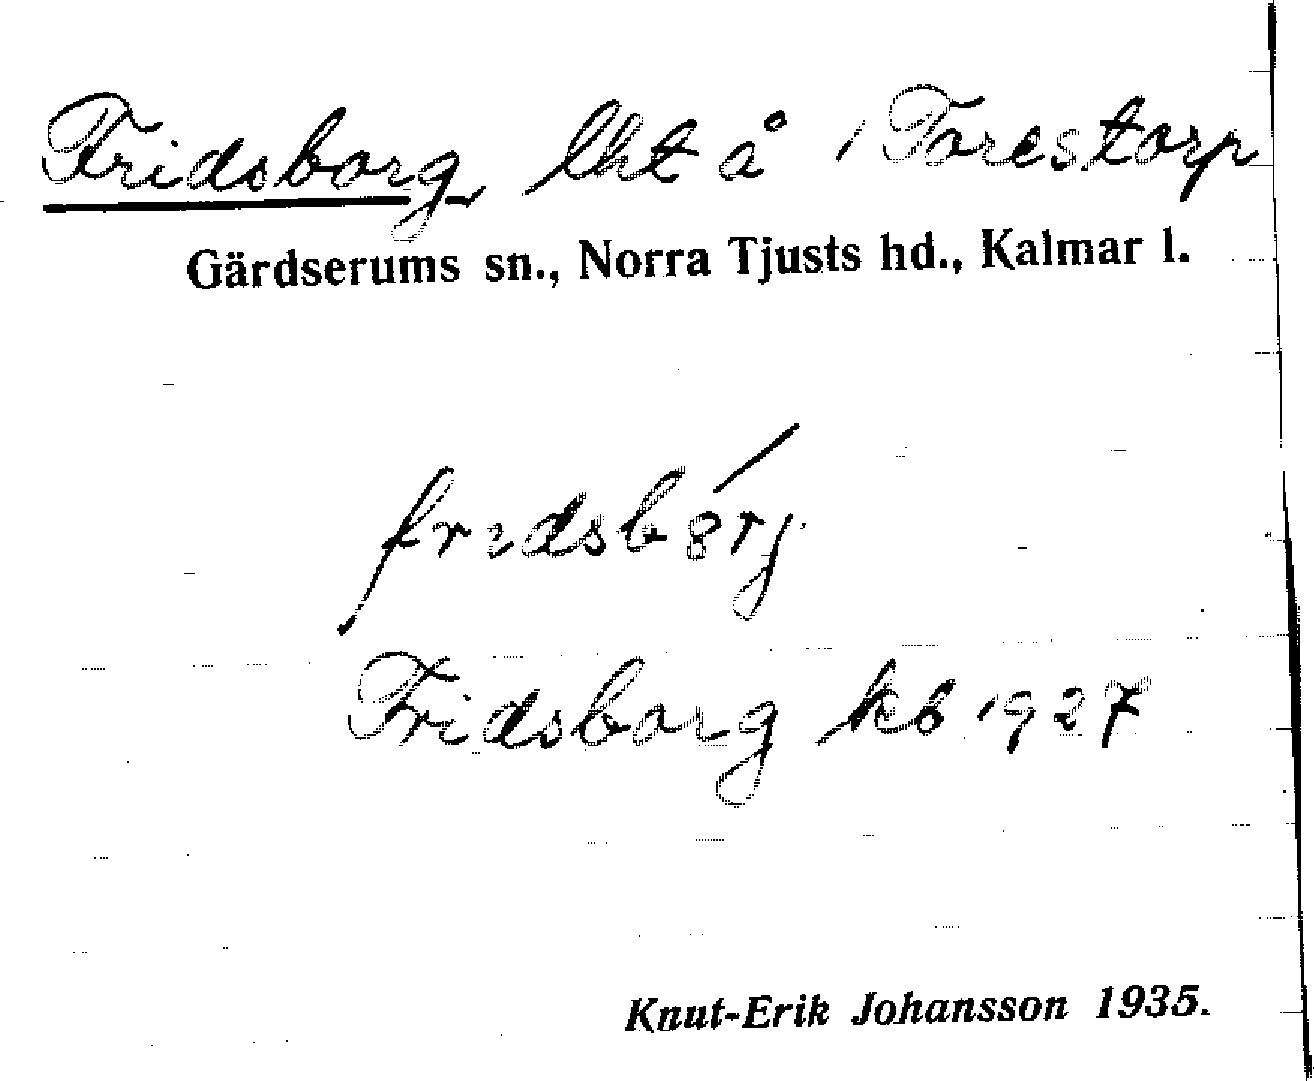 Fridsborg, lht å 1 Torestorp
Gärdserums sn., Norra Tjusts hd., Kalmar l.
Fridsborg kb 1927
Knut-Erik Johansson 1935.